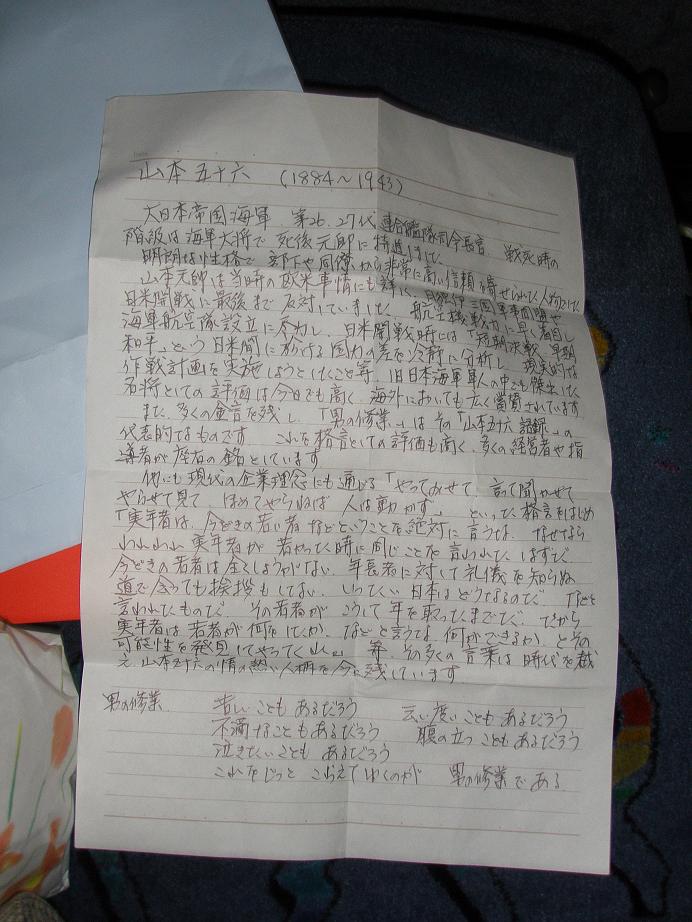 山本五十六 (1884～1943)
大日本帝国海軍 第26、27代 連合艦隊司令長官 戦死時の
階級は海軍大将で 死後元帥に特進しました
明朗な性格で 部下や同僚から非常に高い信頼を寄せられた人物でした
山本元帥は当時の欧米事情にも詳しく 日独伊三国軍事同盟や
日米開戦に最後まで反対していました 航空機戦力に早く着目し
海軍航空隊設立に尽力し、日米開戦時には「短期決戦、早期
和平」という日米間に於ける国力の差を冷静に分析し 現実的な
作戦計画を実施しようとしたこと等、旧日本海軍軍人の中でも傑出した
名将としての評価は今日でも高く 海外においても広く賞賛されています
また、多くの金言を残し、「男の修業」はその「山本五十六語録」の
代表的なものです これを格言としての評価も高く、多くの経営者や指
導者が座右の銘としています
他にも現代の企業理念にも通じる「やってみせて、言って聞かせて
やらせて見て ほめてやらねば 人は動かず」 といった格言をはじめ
「実年者は、今どきの若い者などということを絶対に言うな なぜなら
われわれ実年者が若かった時に同じことを言われたはずだ
今どきの若者は全くしょうがない、年長者に対して礼儀を知らぬ
道で会っても挨拶もしない、いったい日本はどうなるのだ などと
言われたものだ その若者が こうして年を取ったまでだ だから
実年者は若者が何をしたか、などと言うな 何ができるか とその
可能性を発見してやってくれ」 等、その多くの言葉は時代を越
え 山本五十六の情の熱い人柄を今に残しています
男の修業 苦しいこともあるだろう 云い度いこともあるだろう
不満なこともあるだろう 腹の立つこともあるだろう
泣きたいこともあるだろう
これをじっと こらえてゆくのが 男の修業である